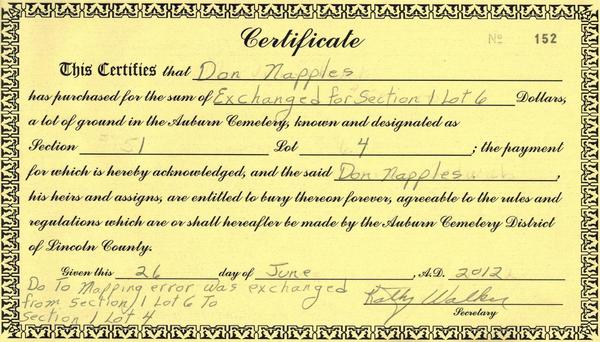 Certificate
No 152
This Certifies that Don Napples
has purchased for the sum of Exchanged for Section 1 Lot 6 Dollars,
a lot of ground in the Auburn Cemetery, known and designated as
Section 1 Lot 4 ; the payment
for which is hereby acknowledged, and the said Don Napples,
his heirs and assigns, are entitled to bury thereon forever, agreeable to the rules and
regulations which are or shall hereafter be made by the Auburn Cemetery District
of Lincoln County.
Given this 26 day of June, A.D. 2012
Do To Mapping error was exchanged
from section 1 Lot 6 To
Section 1 Lot 4
Kathy Walker
Secretary